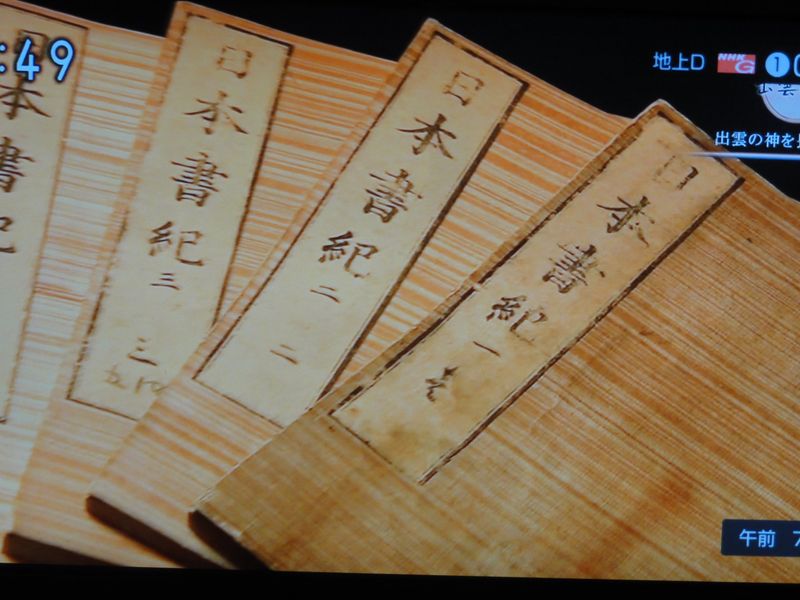 :49
地上D NHK G 1
出雲の神を
日本書紀 一 壱
日本書紀 二 二
日本書紀 三 三
本書紀
午前 7